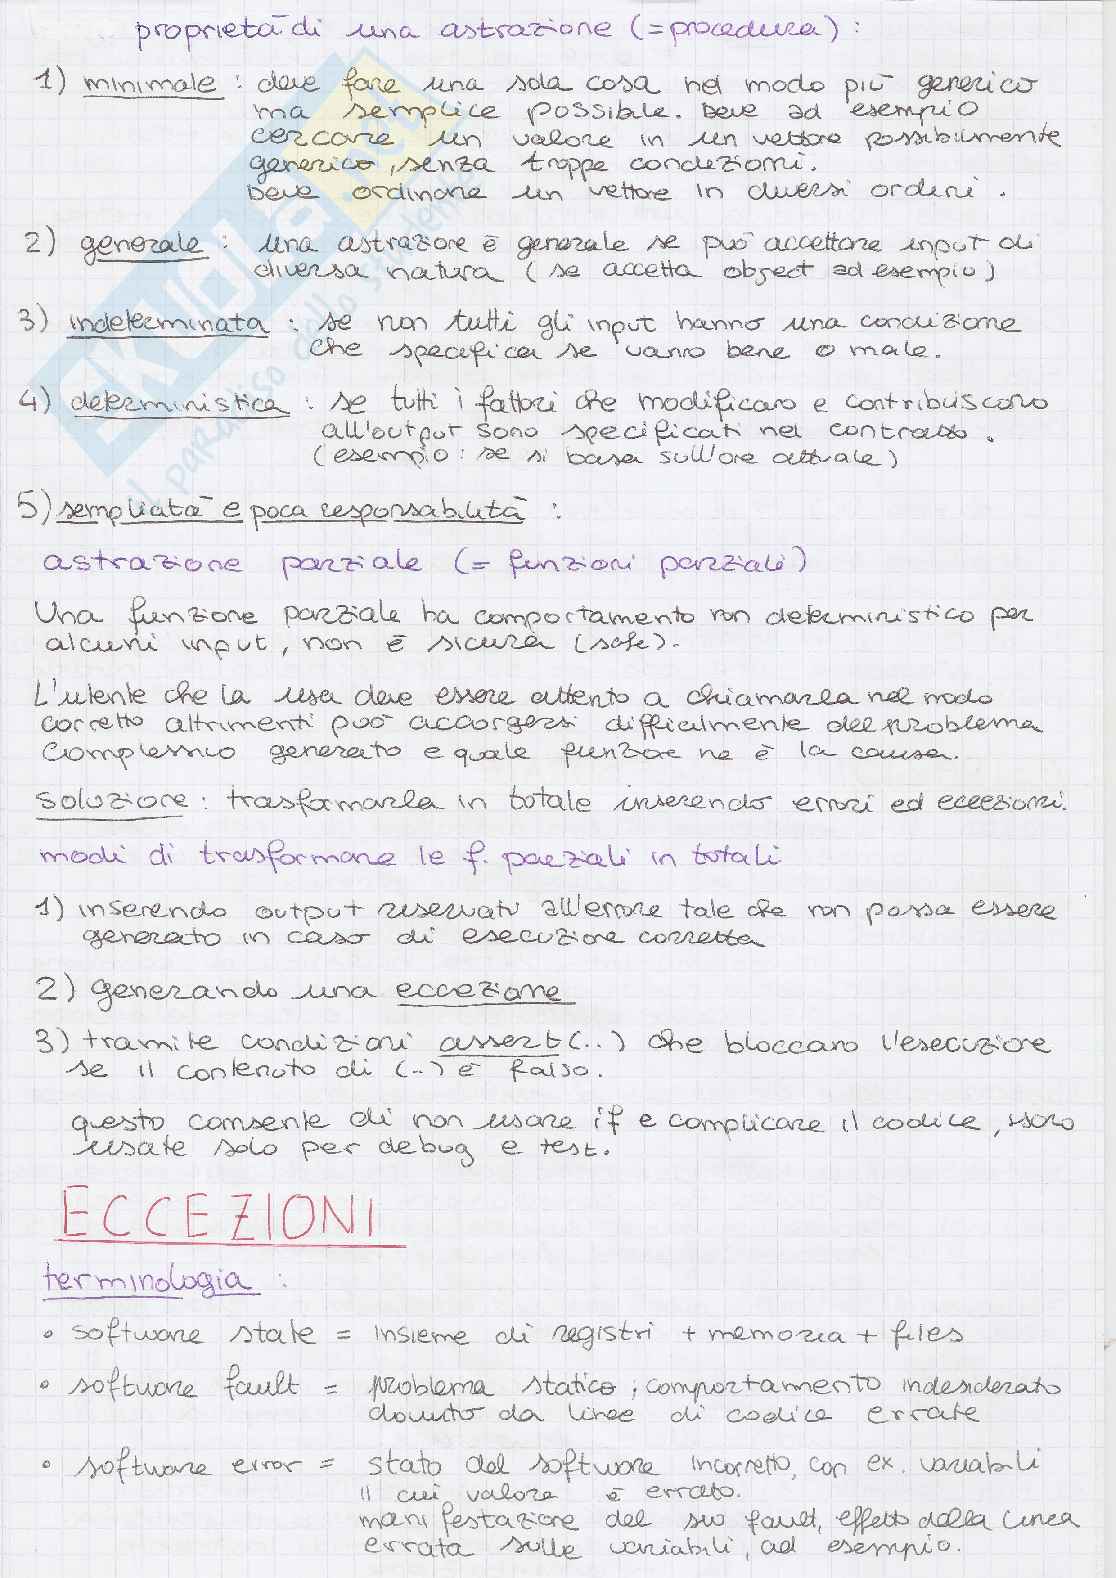 proprietà di una astrazione (= procedura) :
1) minimale : deve fare una sola cosa nel modo più generico
ma semplice possibile. Deve ad esempio
cercare un valore in un vettore possibilmente
generico, senza troppe condizioni.
Deve ordinare un vettore in diversi ordini .
2) generale : una astrazione è generale se può accettare input di
diversa natura ( se accetta object ad esempio)
3) indeterminata : se non tutti gli input hanno una condizione
che specifica se vanno bene o male.
4) deterministica : se tutti i fattori che modificano e contribuiscono
all'output sono specificati nel contratto .
(esempio : se si basa sull'ore attuale)
5) semplicità e poca responsabilità :
astrazione parziale (= funzioni parziali)
Una funzione parziale ha comportamento non deterministico per
alcuni input, non è sicura (safe).
L'utente che la usa deve essere attento a chiamarla nel modo
corretto altrimenti può accorgersi difficilmente del problema
complessivo generato e quale funzione ne è la causa.
soluzione : trasformarla in totale inserendo errori ed eccezioni.
modi di trasformare le f. parziali in totali
1) inserendo output riservati all'errore tale che non possa essere
generato in caso di esecuzione corretta
2) generando una eccezione
3) tramite condizioni assert(..) che bloccano l'esecuzione
se il contenuto di (..) è falso.
questo consente di non usare if e complicare il codice, sono
usate solo per debug e test.
ECCEZIONI
terminologia :
• software state = insieme di registri + memoria + files
• software fault = problema statico, comportamento indesiderato
dovuto da linee di codice errate
• software error = stato del software incorretto, con ex. variabili
il cui valore è errato.
manifestazione del sw fault, effetto della linea
errata sulle variabili, ad esempio.
skuola.net
il paradiso dello studente